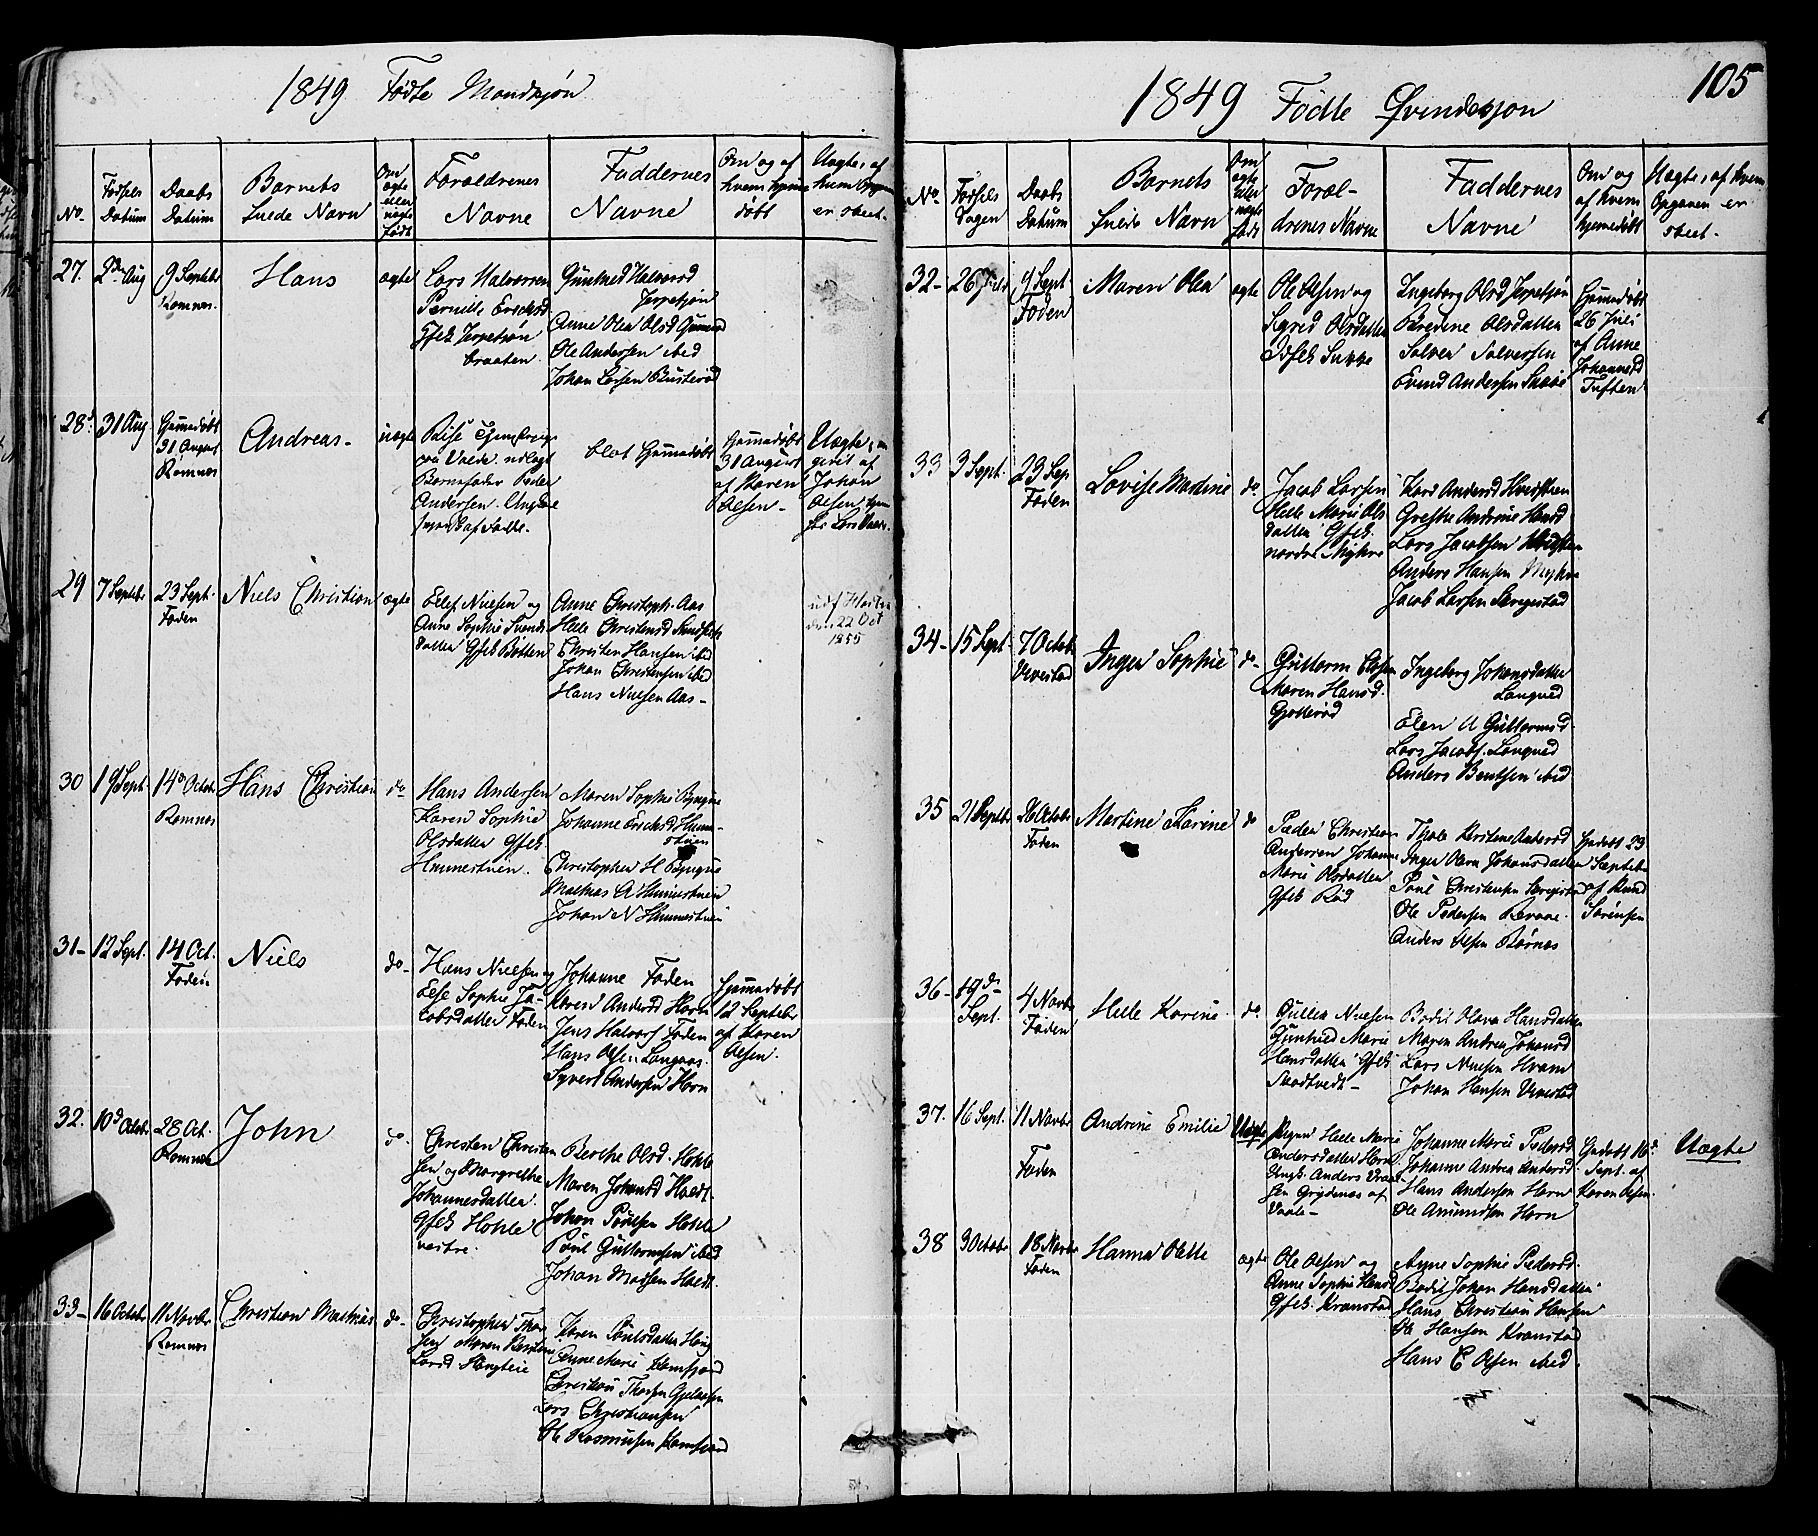 1849 Födte Mandkjön
No.
Födsels Datum
Daabs Datum
Barnets fulde Navn
Om ægte eller uægte födt
Forældrenes Navne
Faddernes Navne
Om og af hvem hjemmedöbt
Uægte, af hvem Opgaven er skeet.
27.
2den Aug
9 Septebr
Romnes.
Hans
ægte
Lars Halvorsen
Pernille Ericksd.
Gfek Jerpetjön
braaten.
Gunhild Halvorsd
Jerpetjön
Anne Olea Olsd
Ole Andersen ibid
Johan Larsen Busterød
28
31 Aug
Hjemmedöbt
31 August
Romnes
Andreas-
uægte
Andersen
blot Hjemmedöbt
Hjemmedöbt
31 August
af Karen
Olsen-
Uægte,
af
Johan
Olsen
29
7 Septebr
23 Sept.
Foden
Niels Christian
ægte
Ellef Nielsen og
Anne Sophie Svends
datter Gfek Botten
Anne Christoph. Aas
Helle Christensd
Christen Hansen ibid
Johan Christensen ibid
Hans Nielsen Aas-
udf
den 22 Oct
1855
30
19 Sept.
14de Octobr
Romnes
Hans Christian
do
Hans Andersen
Karen Sophie
Olsdatter Gfek
Hunnestuen.
Maren Sophie Bynque
Johanne Ericksd Hunne
stuen
Christopher H Bynque
Mathias A Hunnestuen
Johan N Hunnestuen
31-
12 Sept.
14 Oct.
Foden
Niels
do-
Hans Nielsen og
Else Sophie Ja-
cobsdatter Foden
Johanne Foden
Karen Andersd Horn
Jens Halvors. Foden
Hans Olsen Langaas
Syvert Andersen Horn
Hjemmedöbt
12 Septebr
af Karen
Olsen.
32.
10de Octobr.
28 Oct.
Romnes
John
do.
Christen Christen
sen og Margrethe
Johannesdatter.
Gfek Hohle
vestre.
Berthe Olsd. Hohle
Maren Johansd Holdt.
Johan Poulsen Hohle
Poul Guttormsen ibid
Johan Madsen Holdt.
33-
16 Octobr
11 Novbr
Romnes
Christian Mathias
do-
Christopher Thor
sen Maren Kirstine
Larsd
Karen Poulsdatter
Anne Marie
Christian Thorsen
Lars Christiansen
Ole Rasmussen
105
1849 Födte Qvindekjön
No.
Födsels Dagen
Daabs Datum
Barnets fulde Navn
Om ægte eller uægte födt
Foræl-
drenes Navne
Faddernes Navne
Om og af hvem hjemmedöbt
Uægte, af hvem Opgaven er skeet.
32-
26 Juli
9 Sept
Foden
Maren Olea
ægte
Ole Olsen og
Syred Olsdatter
Ingeborg Olsd Jerpetjön
Bredine Olsdatter
Salver Salversen
Evend Andersen
Hjemmedöbt
26 Juli
af Anne
Johannesd
Tuften
33
3 Sept.
23 Sep
Foden
Lovise Martine
do.
Jacob Larsen
Helle Marie Ols
datter Gfek.
nordre Myhre
Kari Andersd
Grethe Andrine Hansd
Lars Jacobsen
Anders Hansen Myhre
Jacob Larsen
34-
15 Sept.
7 Octobr
Vivestad
Inger Sophie
do-
Guttorm Olsen
Maren Hansd.
Ingeborg Johansdatter
Langved
Elen A Guttormsd
Lars Jacobs. Langved
Anders Bentsen ibid
35
21 Septbr
26 Octobr
Foden
Martine Karine
do
Peder Christian
Andersen Johanne
Marie Olsdatter
Gfek Rød
Thale Kirstine Andersd
Inger Olava Johansdatter
Poul Christensen
Ole Pedersen
Anders Olsen
Hjdöbt 23
Septebr
af Knud
Sörensen
36-
19de
Sept.
4 Novbr
Foden
Helle Karine.
do.
Gullik Nielsen
Gunhild Marie
Hansdatter Gfek
Bodil Olava Hansdatter
Maren Andrea Johansd
Lars Nielsen Hvam
Johan Hansen Vivestad
37.
16 Sept.
11 Novbr
Foden
Andrine Emilie
Uægte
Pigen Helle Marie
Andersdatter Horn
Ungk. Anders
af
Vaale-
Johanne Marie Pedersd
Johanne Andrea Andersd
Hans Andersen Horn
Ole Amundsen Horn
Hjdöbt 16de
Sept. af
Karen Olsen.
Uægte
38
3 Octobr
18 Novbr
Foden
Hanna Olette
ægte
Ole Olsen og
Anne Sophie Hansd
Gfek. Kranstad
Anne Sophie Pedersd.
Bodil Johan Hansdatter
Hans Christian Hansen
Ole Hansen Kranstad
Hans C Olsen ibid.